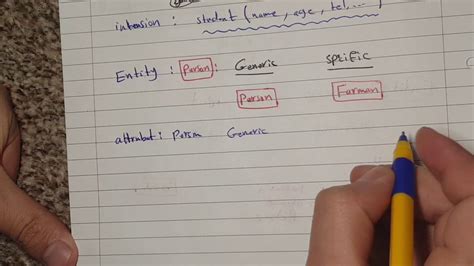 intension : student ( name , age , tel, ... )
Entity : Person Generic spcific
Person Farman
attribut : Person Generic